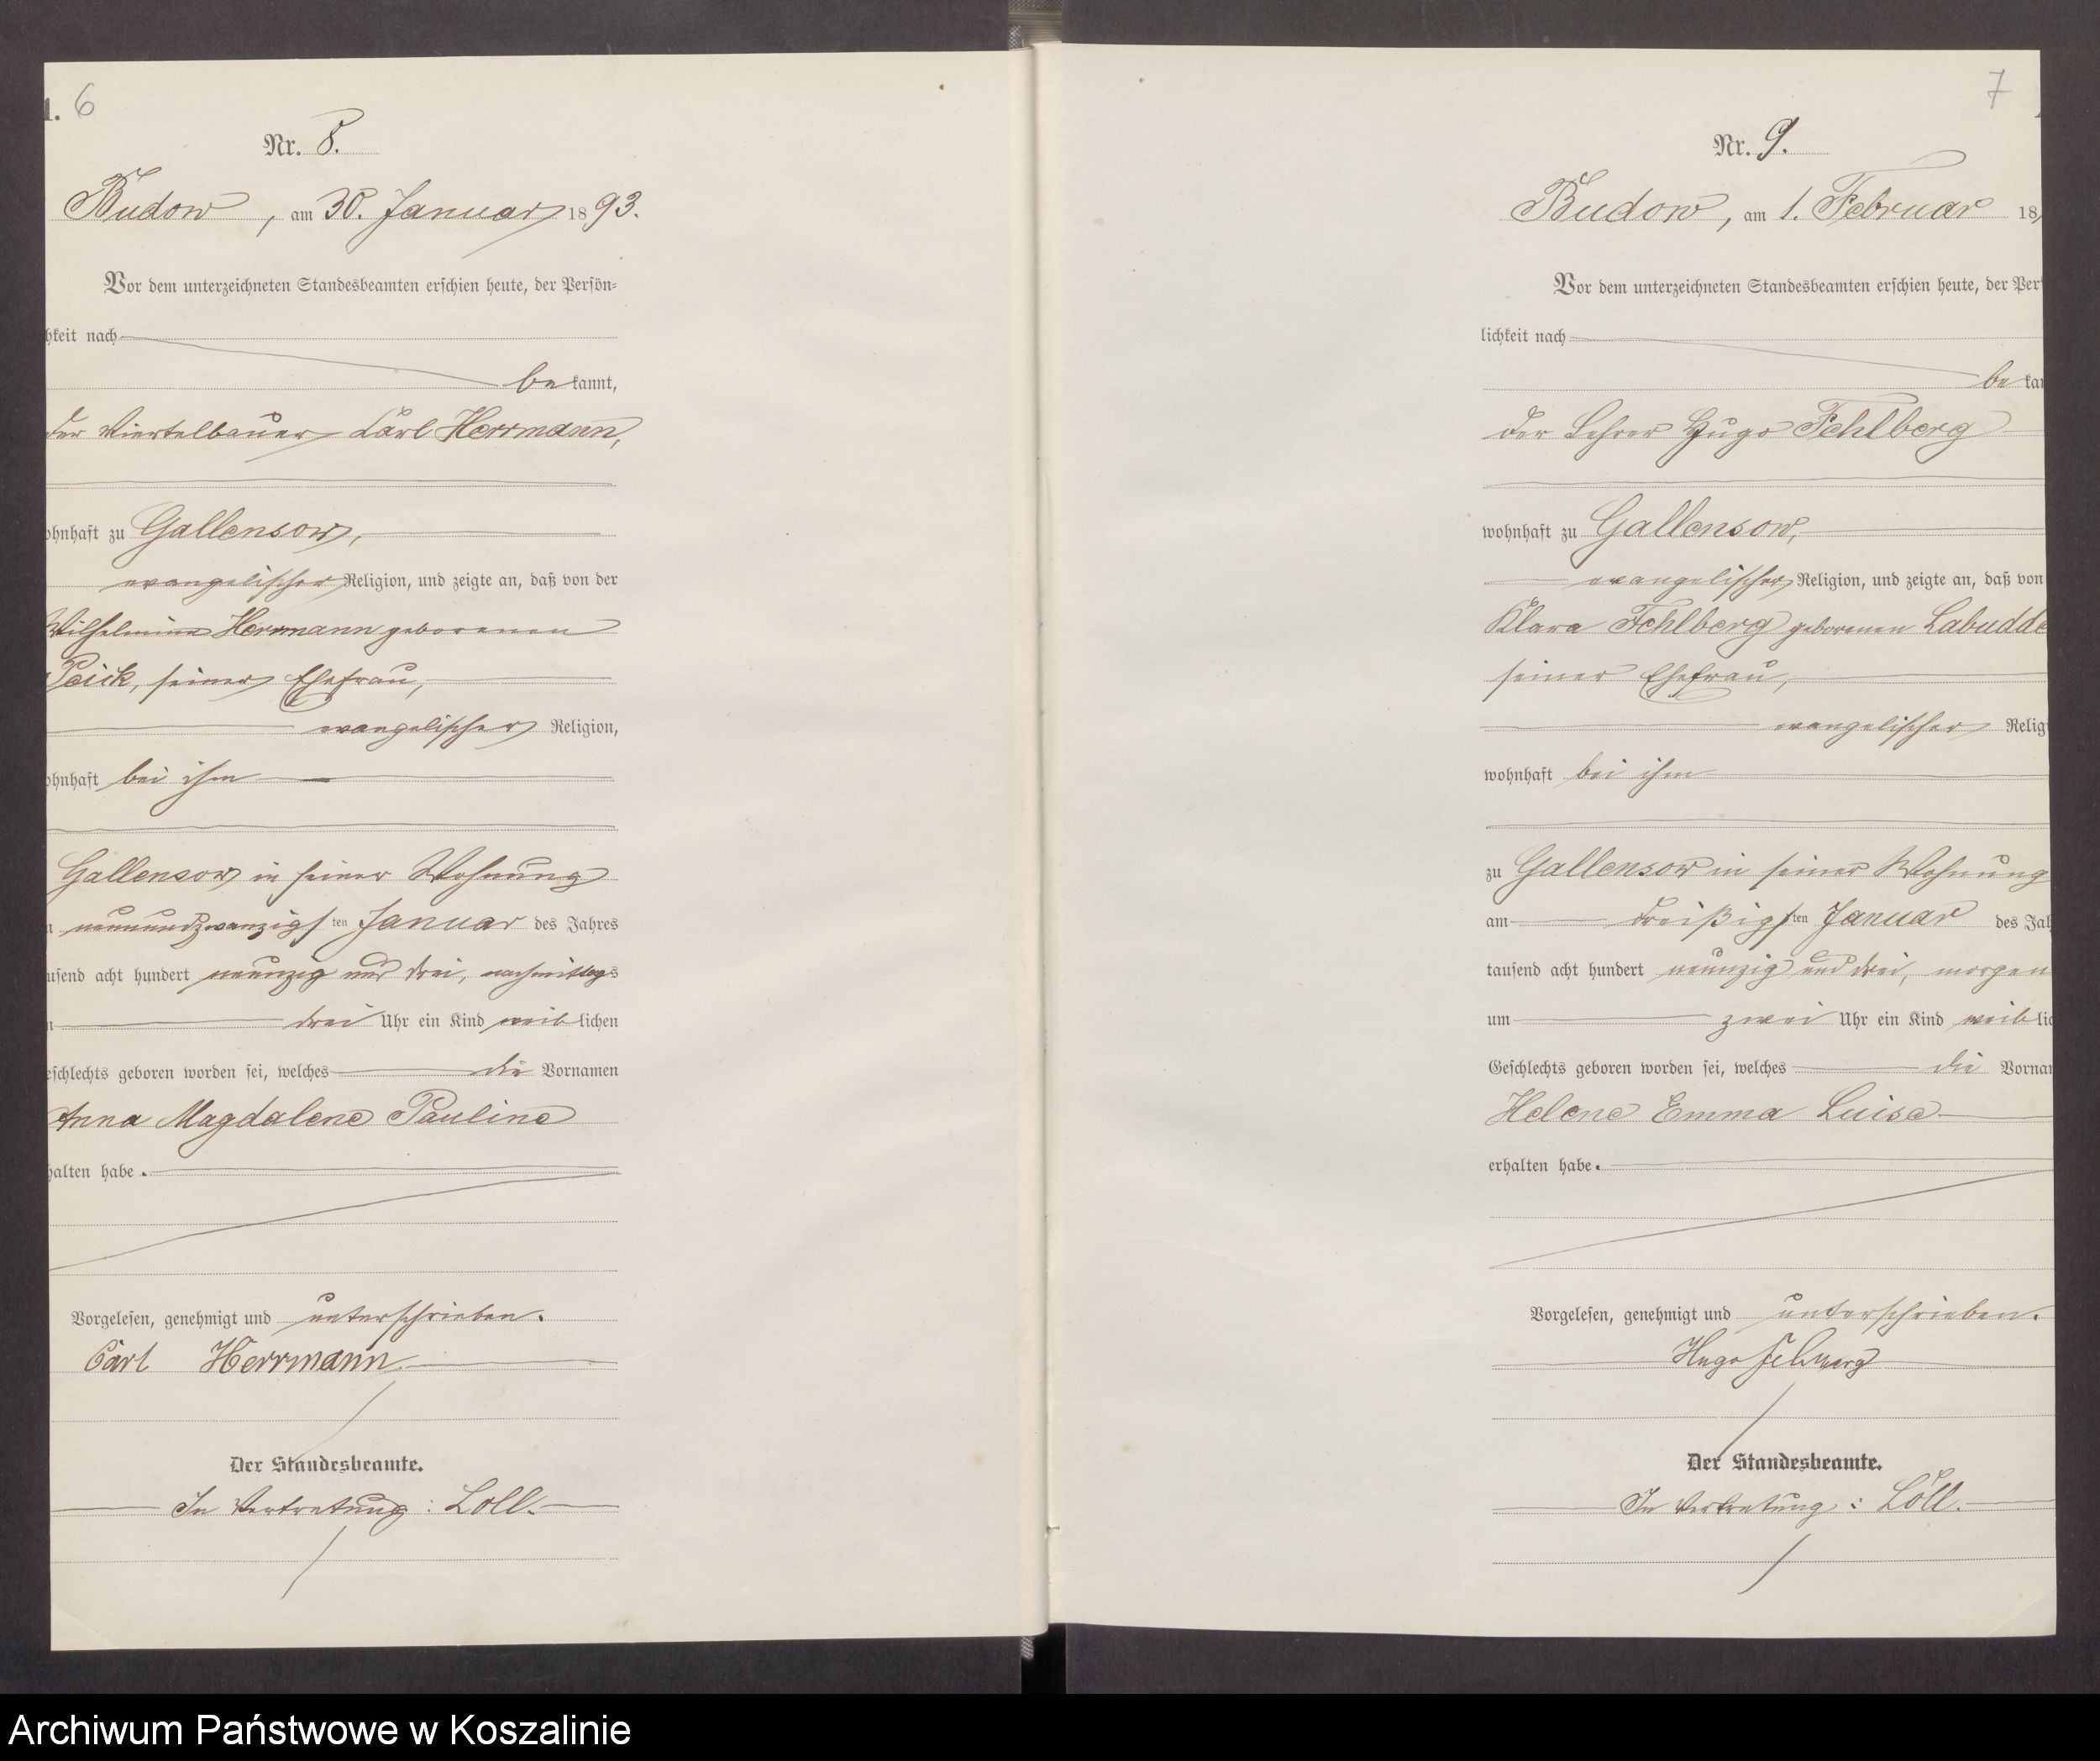 1. 6
Nr. 8.
Budow, am 30. Januar 1893.
Vor dem unterzeichneten Standesbeamten erschien heute, der Persön-
hkeit nach
be kannt,
der Viertelbauer Carl Herrmann,
ohnhaft zu Gallensow,
evangelischer Religion, und zeigte an, daß von der
Wilhelmine Herrmann geborenen
Peick, seiner Ehefrau,
evangelischer Religion,
ohnhaft bei ihm
Gallensow in seiner Wohnung
neunundzwanzigsten Januar des Jahres
usend acht hundert neunzig und drei, nachmittags
drei Uhr ein Kind weiblichen
eschlechts geboren worden sei, welches die Vornamen
Anna Magdalene Pauline
halten habe.
Vorgelesen, genehmigt und unterschrieben.
Carl Herrmann
Der Standesbeamte.
In Vertretung: Löll.
7
Nr. 9.
Budow, am 1. Februar 18
Vor dem unterzeichneten Standesbeamten erschien heute, der Per
lichkeit nach
be kan
der Lehrer Hugo Fehlberg
wohnhaft zu Gallensow,
evangelischer Religion, und zeigte an, daß von
Klara Fehlberg geborenen Labudde
seiner Ehefrau,
evangelischer Relig
wohnhaft bei ihm
zu Gallensow in seiner Wohnung
am dreißigsten Januar des Jah
tausend acht hundert neunzig und drei, morgen
um zwei Uhr ein Kind weiblic
Geschlechts geboren worden sei, welches die Vornam
Helene Emma Luise
erhalten habe.
Vorgelesen, genehmigt und unterschrieben.
Hugo Fehlberg
Der Standesbeamte.
In Vertretung: Löll.
Archiwum Państwowe w Koszalinie